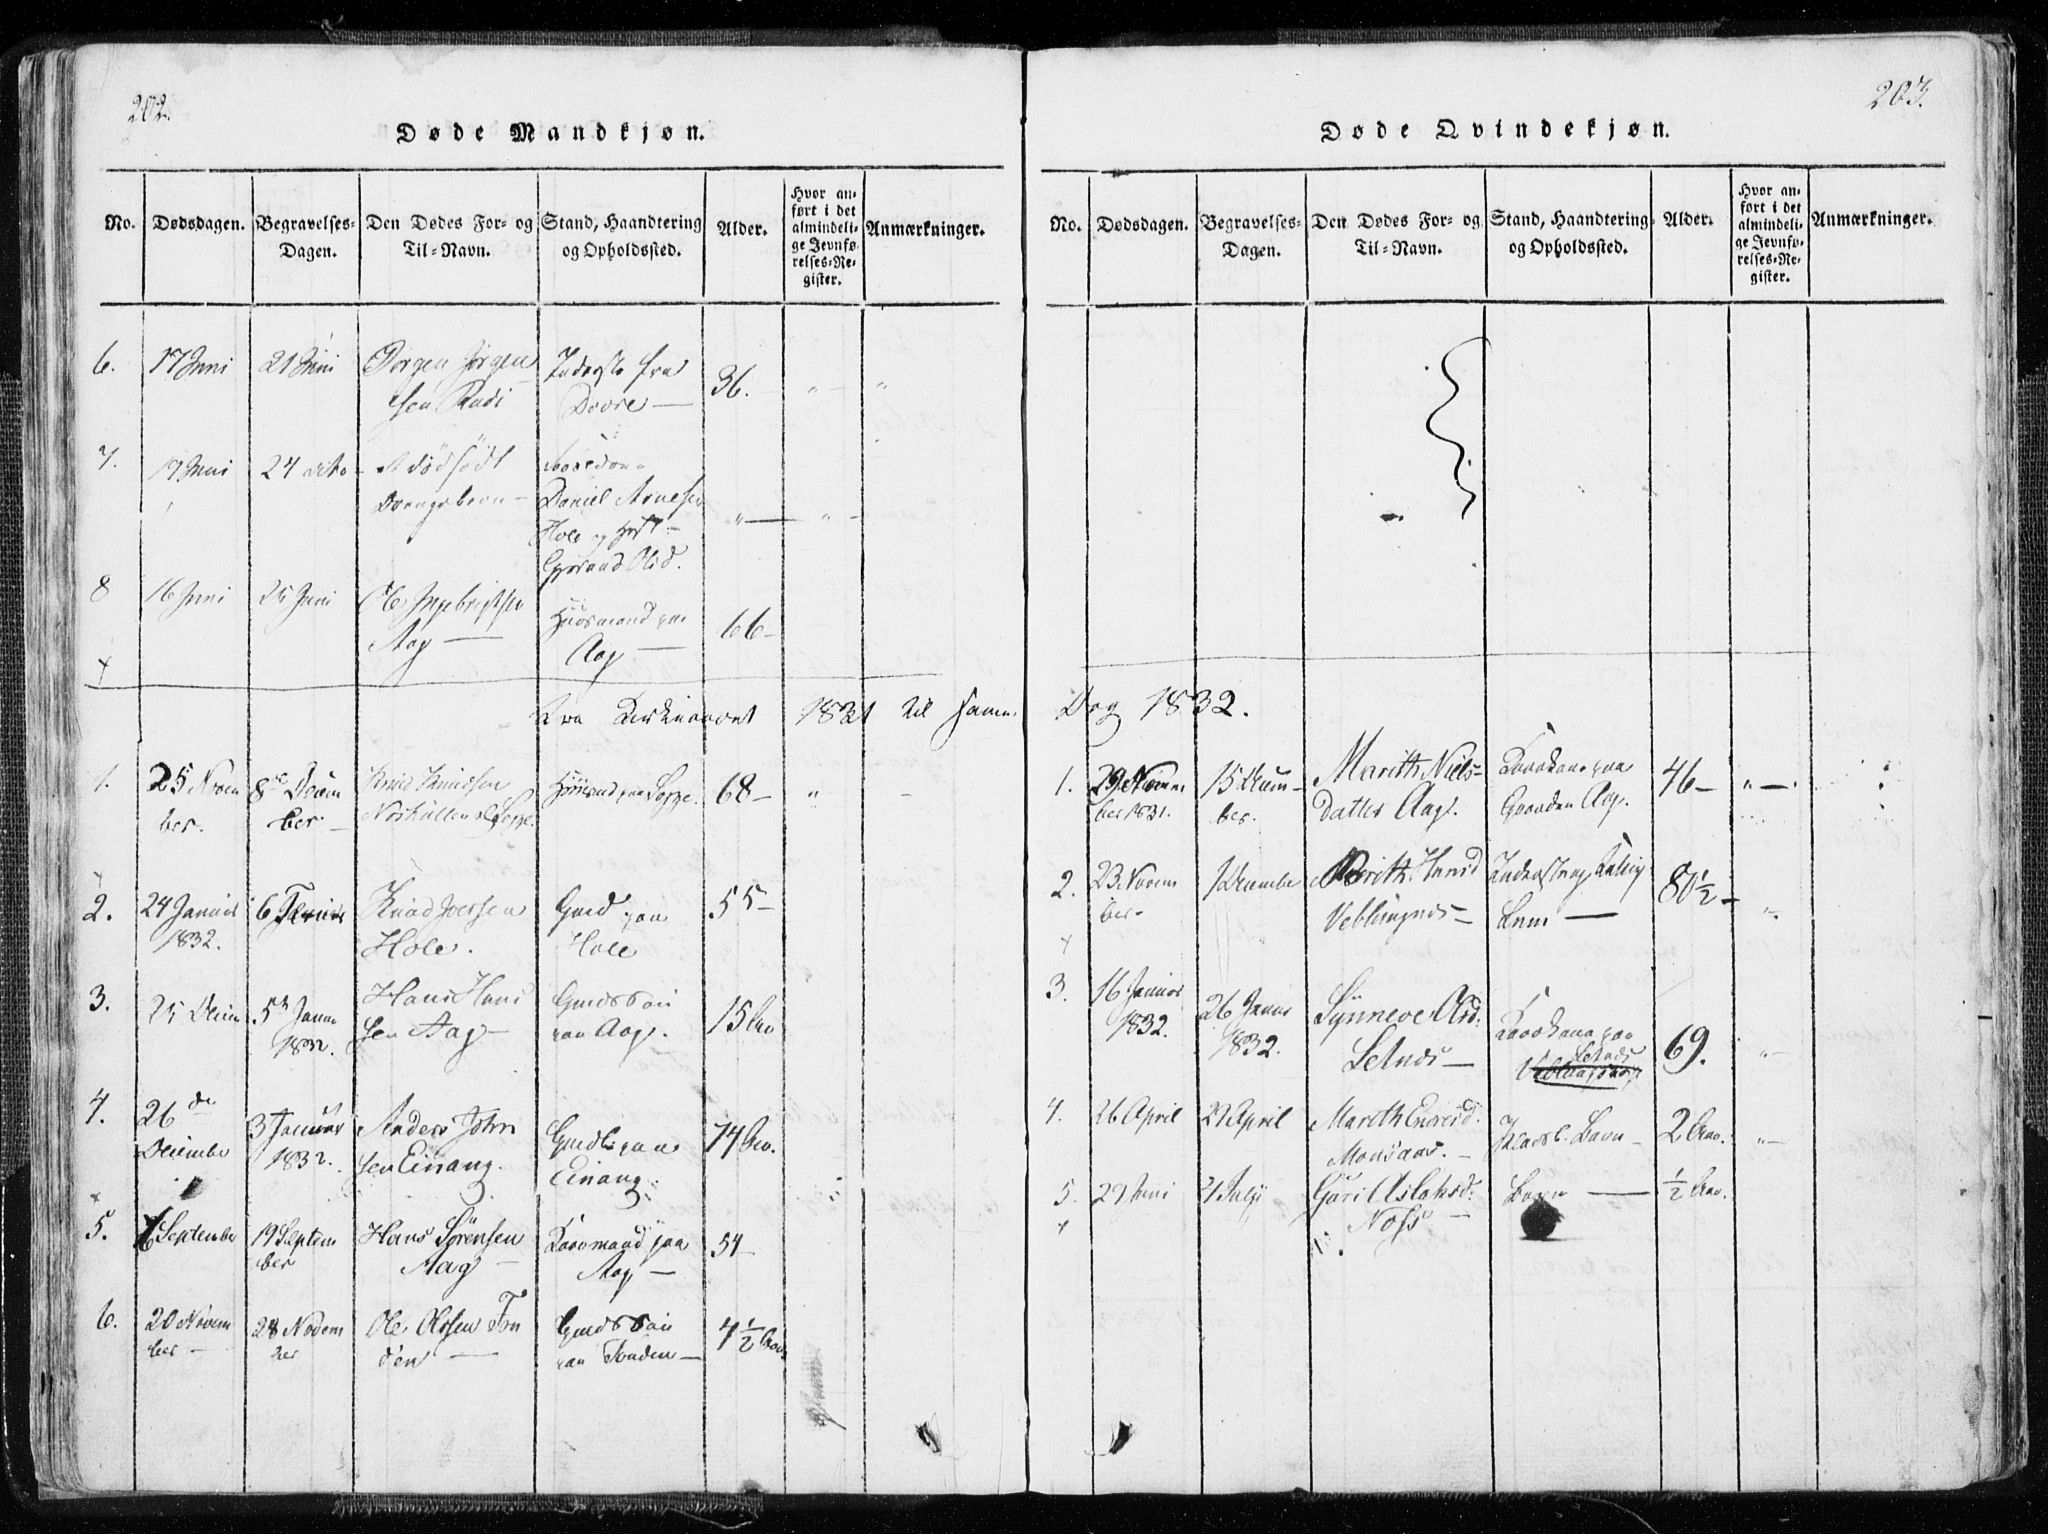 202.
Døde Mandkjøn.
No. Dødsdagen. Begravelses-Dagen. Den Dødes For- og Til-Navn. Stand, Haandtering og Opholdssted. Alder. Hvor anført i det almindelige Jevnførelses-Register. Anmærkninger.
6. 17 Juni 21 Juni Jørgen Jørgen
sen Rudi Inderste fra
Dovre — 36.
7. 17 Juni 24 dito et dödfödt
Drengebarn —
Daniel Arnesen
Hole og Hust
Olsd.
8 16 Juni 25 Juni Ole Ingebrigtsen
Aag — Huusmand paa
Aag — 66 —
Fra Kirkeaaret 1831 til samme
1. 25 Novem
ber. 8de Decem
ber — Knud Knudsen 68 —
2. 24 Januar
1832. 6 Knud Joersen
Hole. Gmd paa
Hole 55 —
3. 25 Decem 5te Janu
1832. Hans Hans
sen Aag — Gmds Søn
paa Aag. 15 Aar
4. 26de
December 3 Januar
1832. Anders John
sen Einang. paa
Einang. 74 Aar.
5. 6 September 19 Septem
ber Hans Sörensen
Aag — Kaarmand paa
Aag — 54 —
6. 20 Novem
ber — 28 Novem
ber Ole Olssen Ton
den — Gmds Søn
paa Tonden — 4½ Aar.
203.
Døde Qvindekjøn.
No. Dødsdagen. Begravelses-Dagen. Den Dødes For- og Til-Navn. Stand, Haandtering og Opholdssted. Alder. Hvor anført i det almindelige Jevnførelses-Register. Anmærkninger.
Dag 1832.
1. 29 Novem
ber 1831. 15 Decem-
ber. Marith Niels-
datter Aag. Kaarkone paa
Gaarden Aag. 46 —
2. 23 Novem
ber — 1 December Berith
Veblungnds — Lem — 80½ —
3. 16 Januar
1832. 26 Janu
1832. Synneve Olsd.
Setnds — Kaarkone paa
Setnds 69.
4. 26 April 29 April Marith
Monsaas. — Barn — 2 Aar.
5. 29 Juni 4 July Guri Aslaksd.
Noss — Barn — ½ Aar.